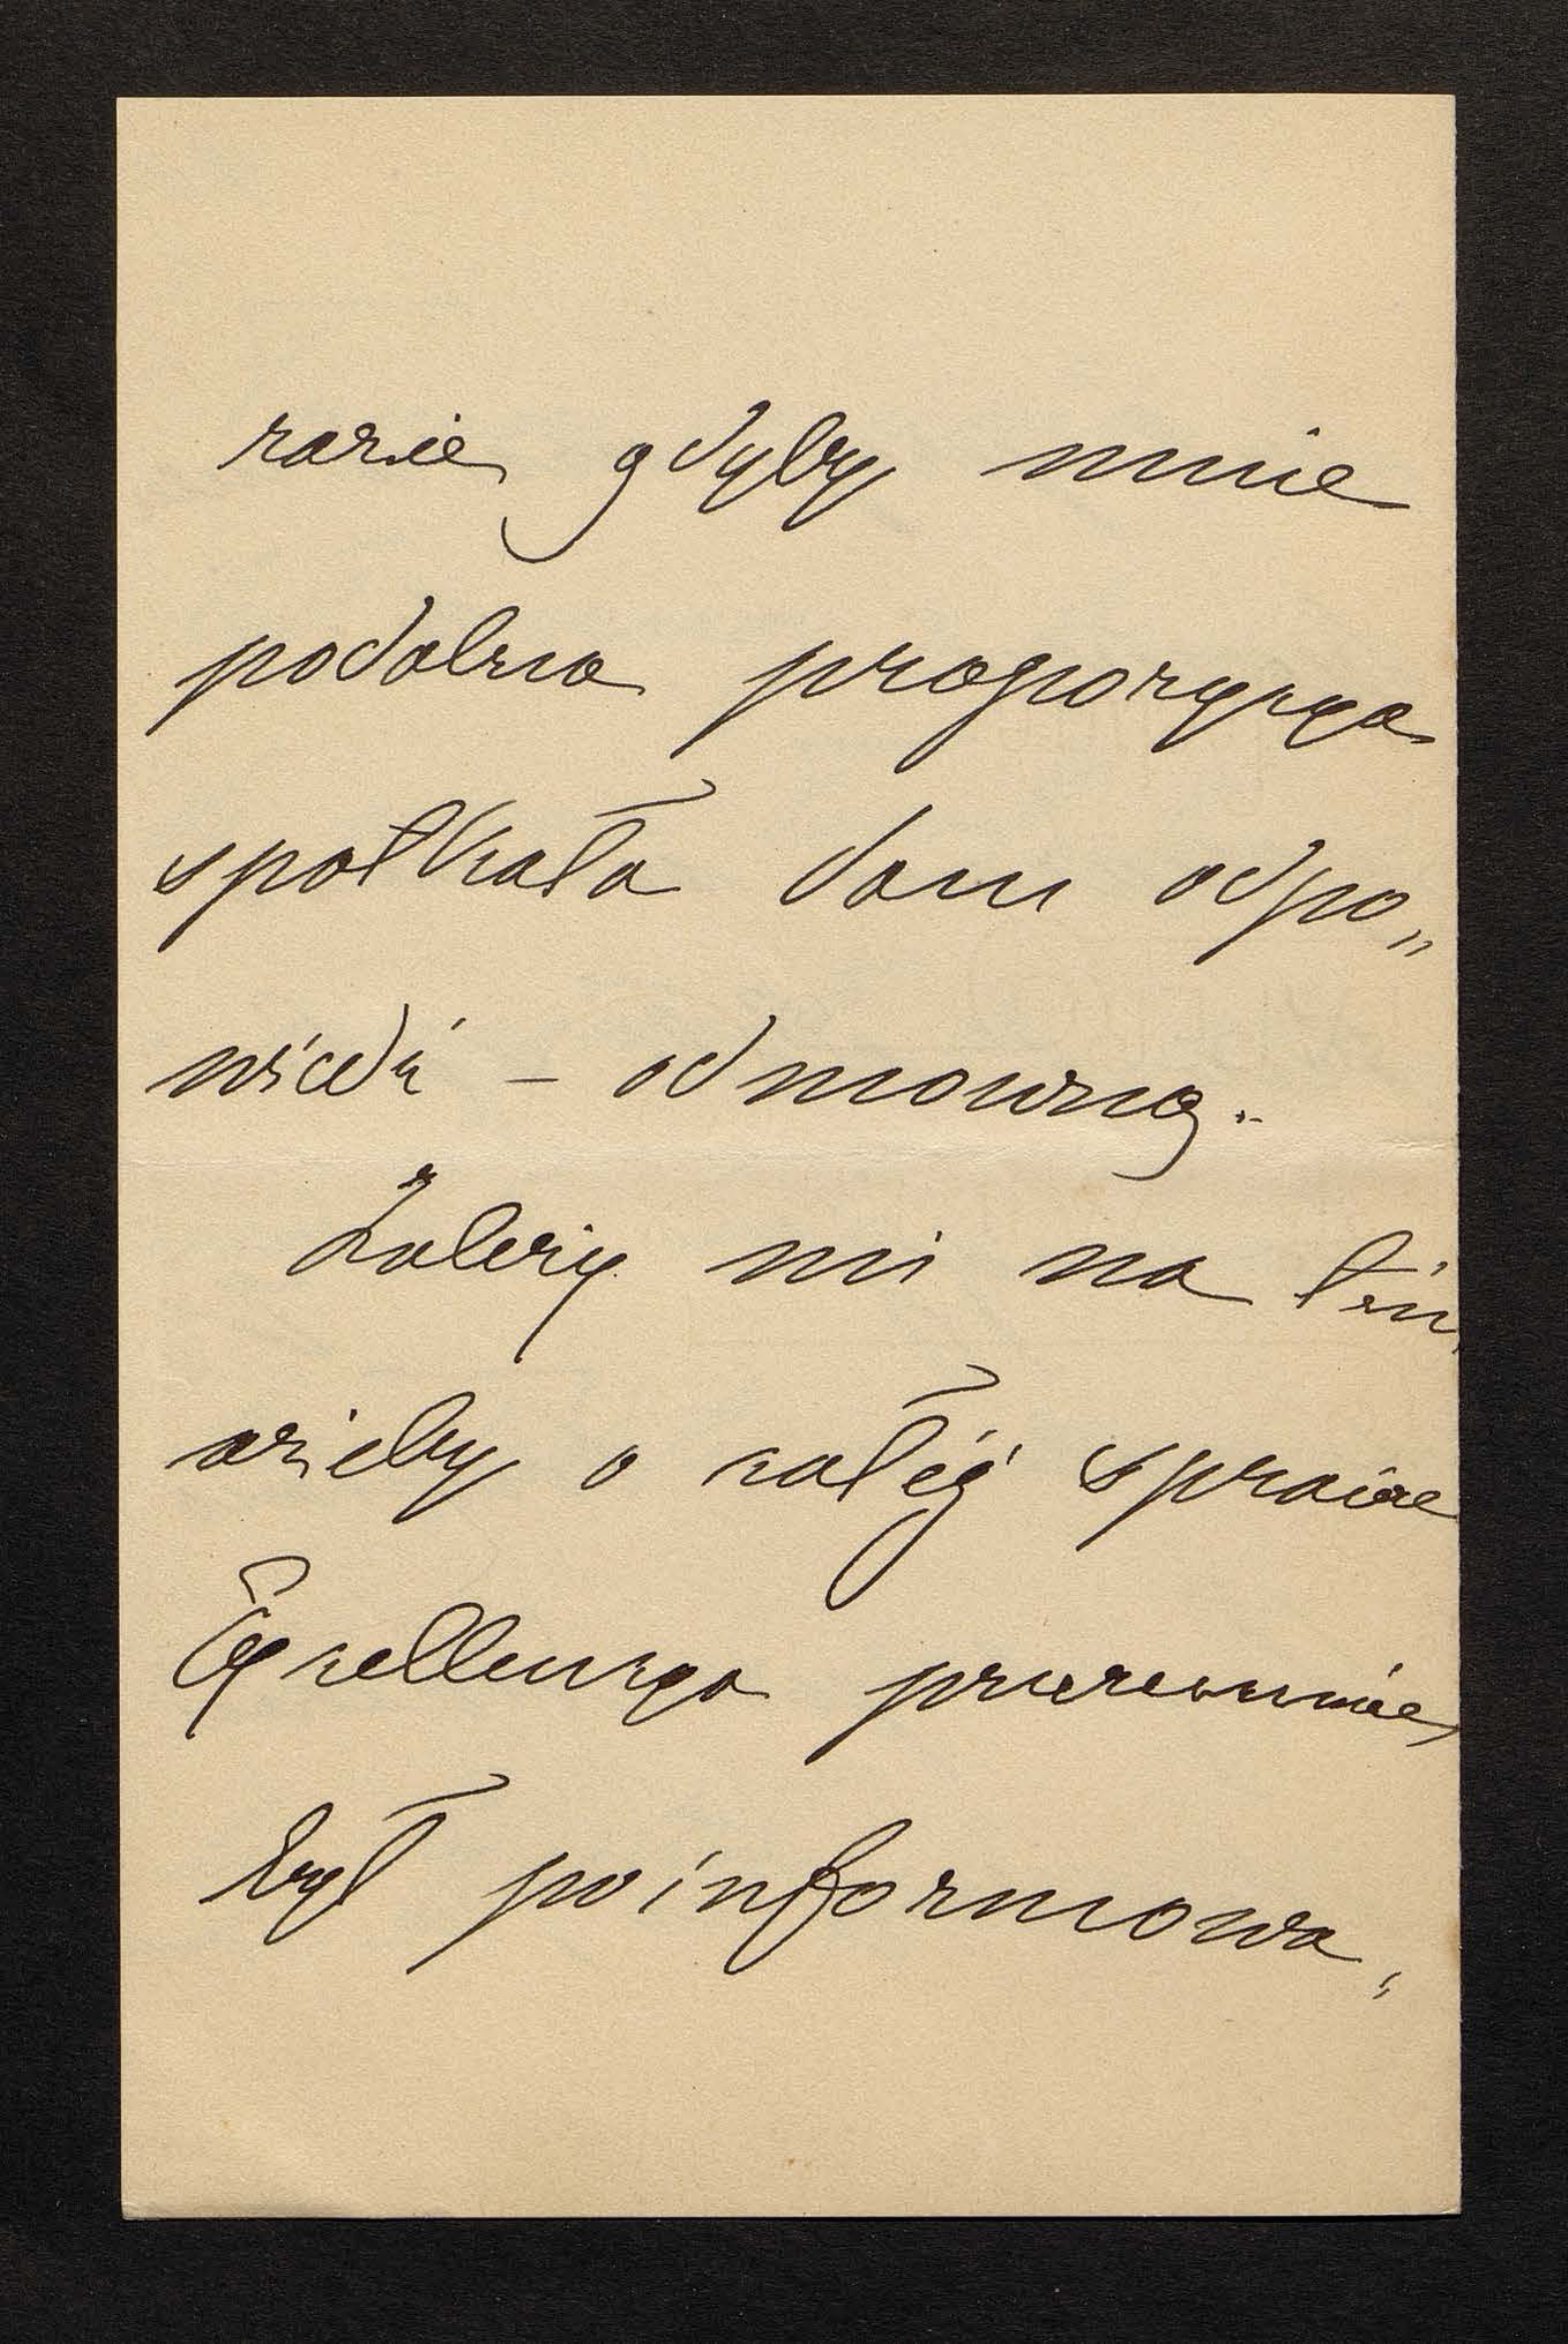 razie gdyby mnie
podobna propozycya
spotkała dam odpo„
wiedź – odmowną.
Zależy mi na tém,
ażeby o całéj sprawie
Excellencya przezemnie
był poinformowa„